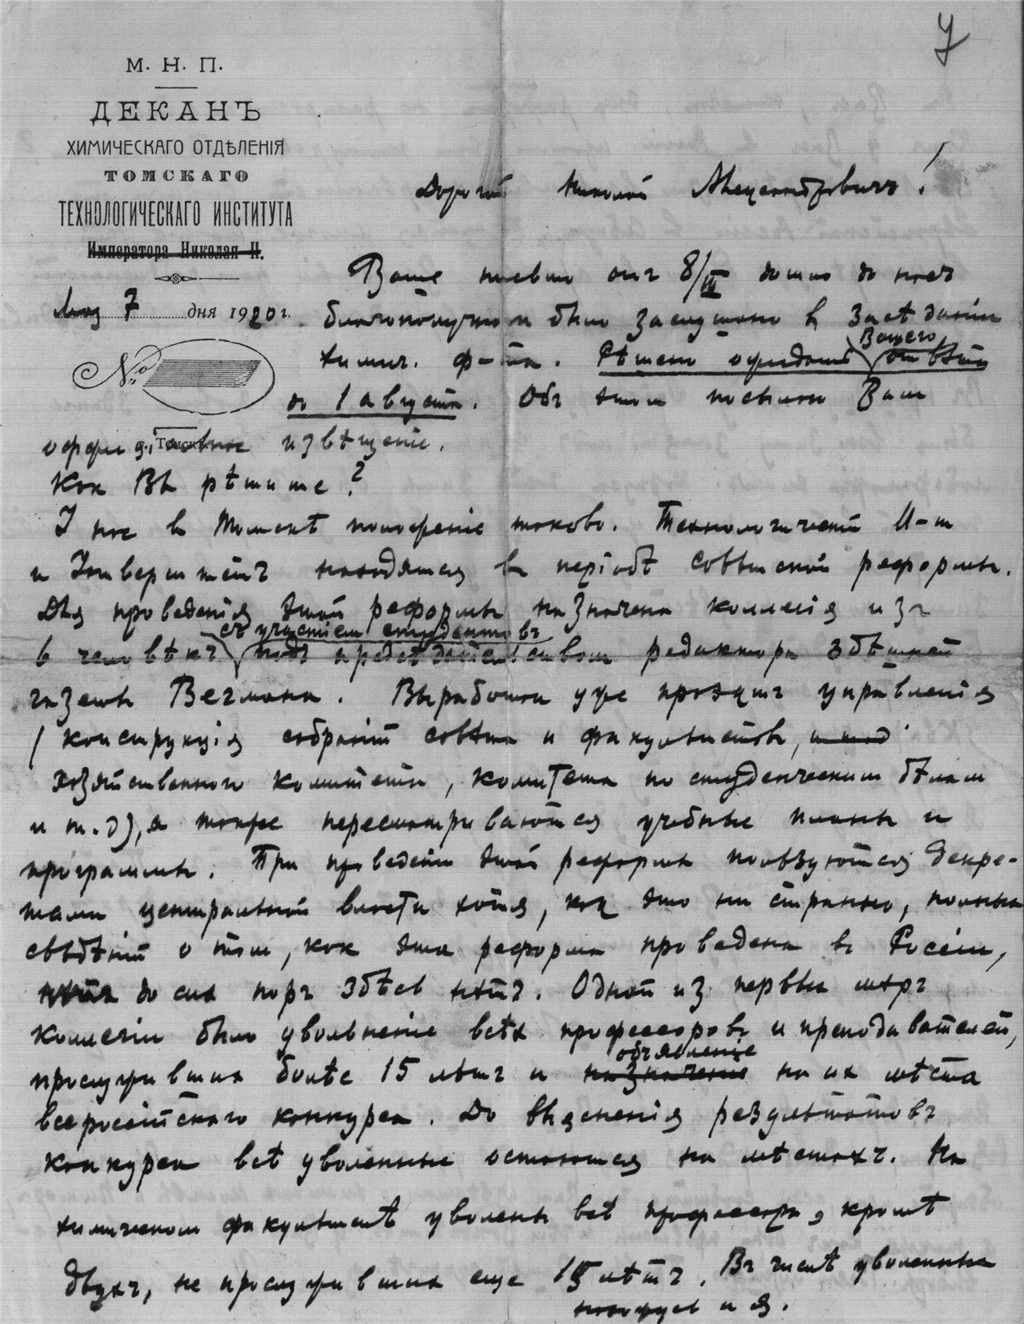 7
М. Н. П.
ДЕКАНЪ
ХИМИЧЕСКАГО ОТДѢЛЕНІЯ
ТОМСКАГО
ТЕХНОЛОГИЧЕСКАГО ИНСТИТУТА
Императора Николая II.
Дорогой Николай Александровичъ!
Ваше письмо отъ 8/III дошло до насъ
7 дня 1920 г.
благополучно и было заслушано в Засѣданіи
химич. ф-та. Рѣшено ожидать Вашего отвѣта
№
до 1 августа. Объ этом послано Вам
г. Томскъ
оффиціальное извѣщеніе.
Как Вы рѣшите?
У нас в Томскѣ положеніе таково. Технологическій И-т
и Университетъ находятся в періодѣ совѣтской реформы.
Для проведенія этой реформы назначена коллегія изъ
6 человѣкъ съ участіем студентовъ подъ предсѣдательством редактора здѣшней
газеты Вегмана. Выработан уже проэктъ управленія
(конструкція собраній совѣта и факультетов, и над
хозяйственного комитета, комитета по студенческим дѣлам
и т. д), а также пересматриваются учебные планы и
программы. При проведеніи этой реформы пользуются декре-
тами центральной власти хотя, как это ни странно, полных
свѣдѣній о том, как эта реформа проведена в Россіи,
нѣтъ до сих поръ здѣсь нѣтъ. Одной из первых мѣръ
коллегіи было увольненіе всѣх профессоровъ и преподавателей,
прослуживших болѣе 15 лѣтъ и назначеніе объявленіе на их мѣста
всероссійского конкурса. До выясненія результатовъ
конкурса всѣ уволенные остаются на мѣстахъ. На
химическом факультетѣ уволены всѣ профессора, кромѣ
двухъ, не прослуживших еще 15 лѣтъ. Въ числѣ уволенных
нахожусь и я.